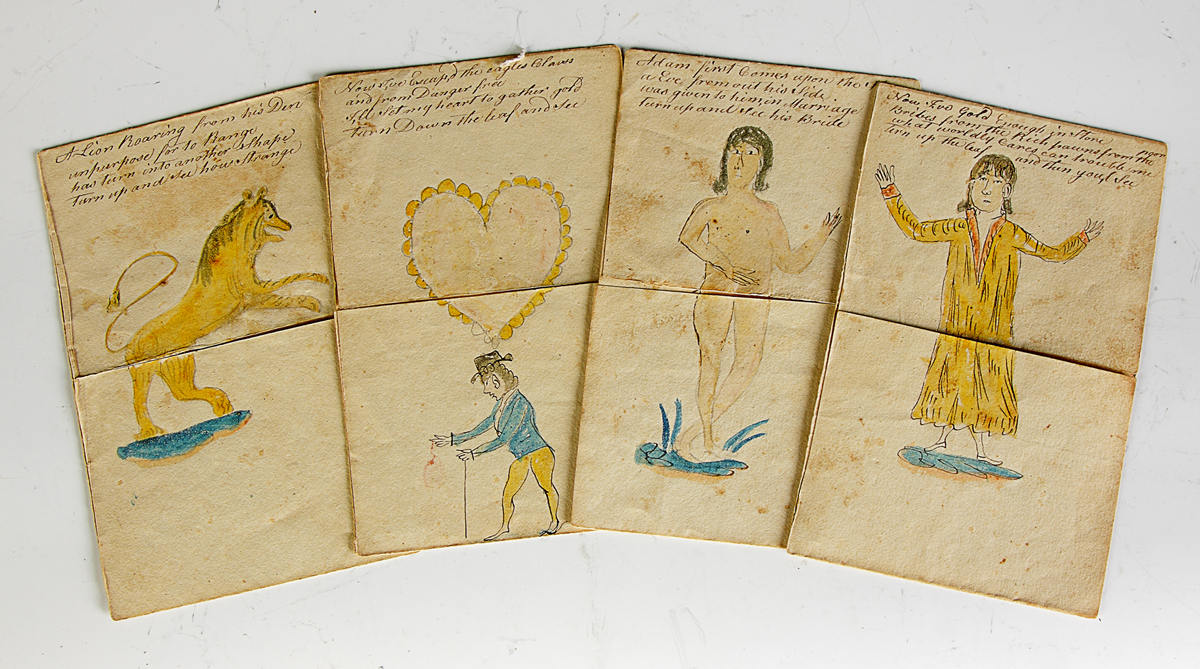 A Lion Roaring from his Den
unpurpose for to Range
has turn into another Shape
turn up and See how Strange
Now I've Escap'd the eagles Claws
and from Danger free
I'll Set my heart to gather gold
turn Down the leaf and See
Adam first Comes upon the
a Eve from out his Side
was given to him in Marriage
turn up and See his Bride
Now I've Gold Enough in Store
bribes from the Rich pawns from the poor
what worldly Cares Can trouble me
turn up the leaf and then you'l See